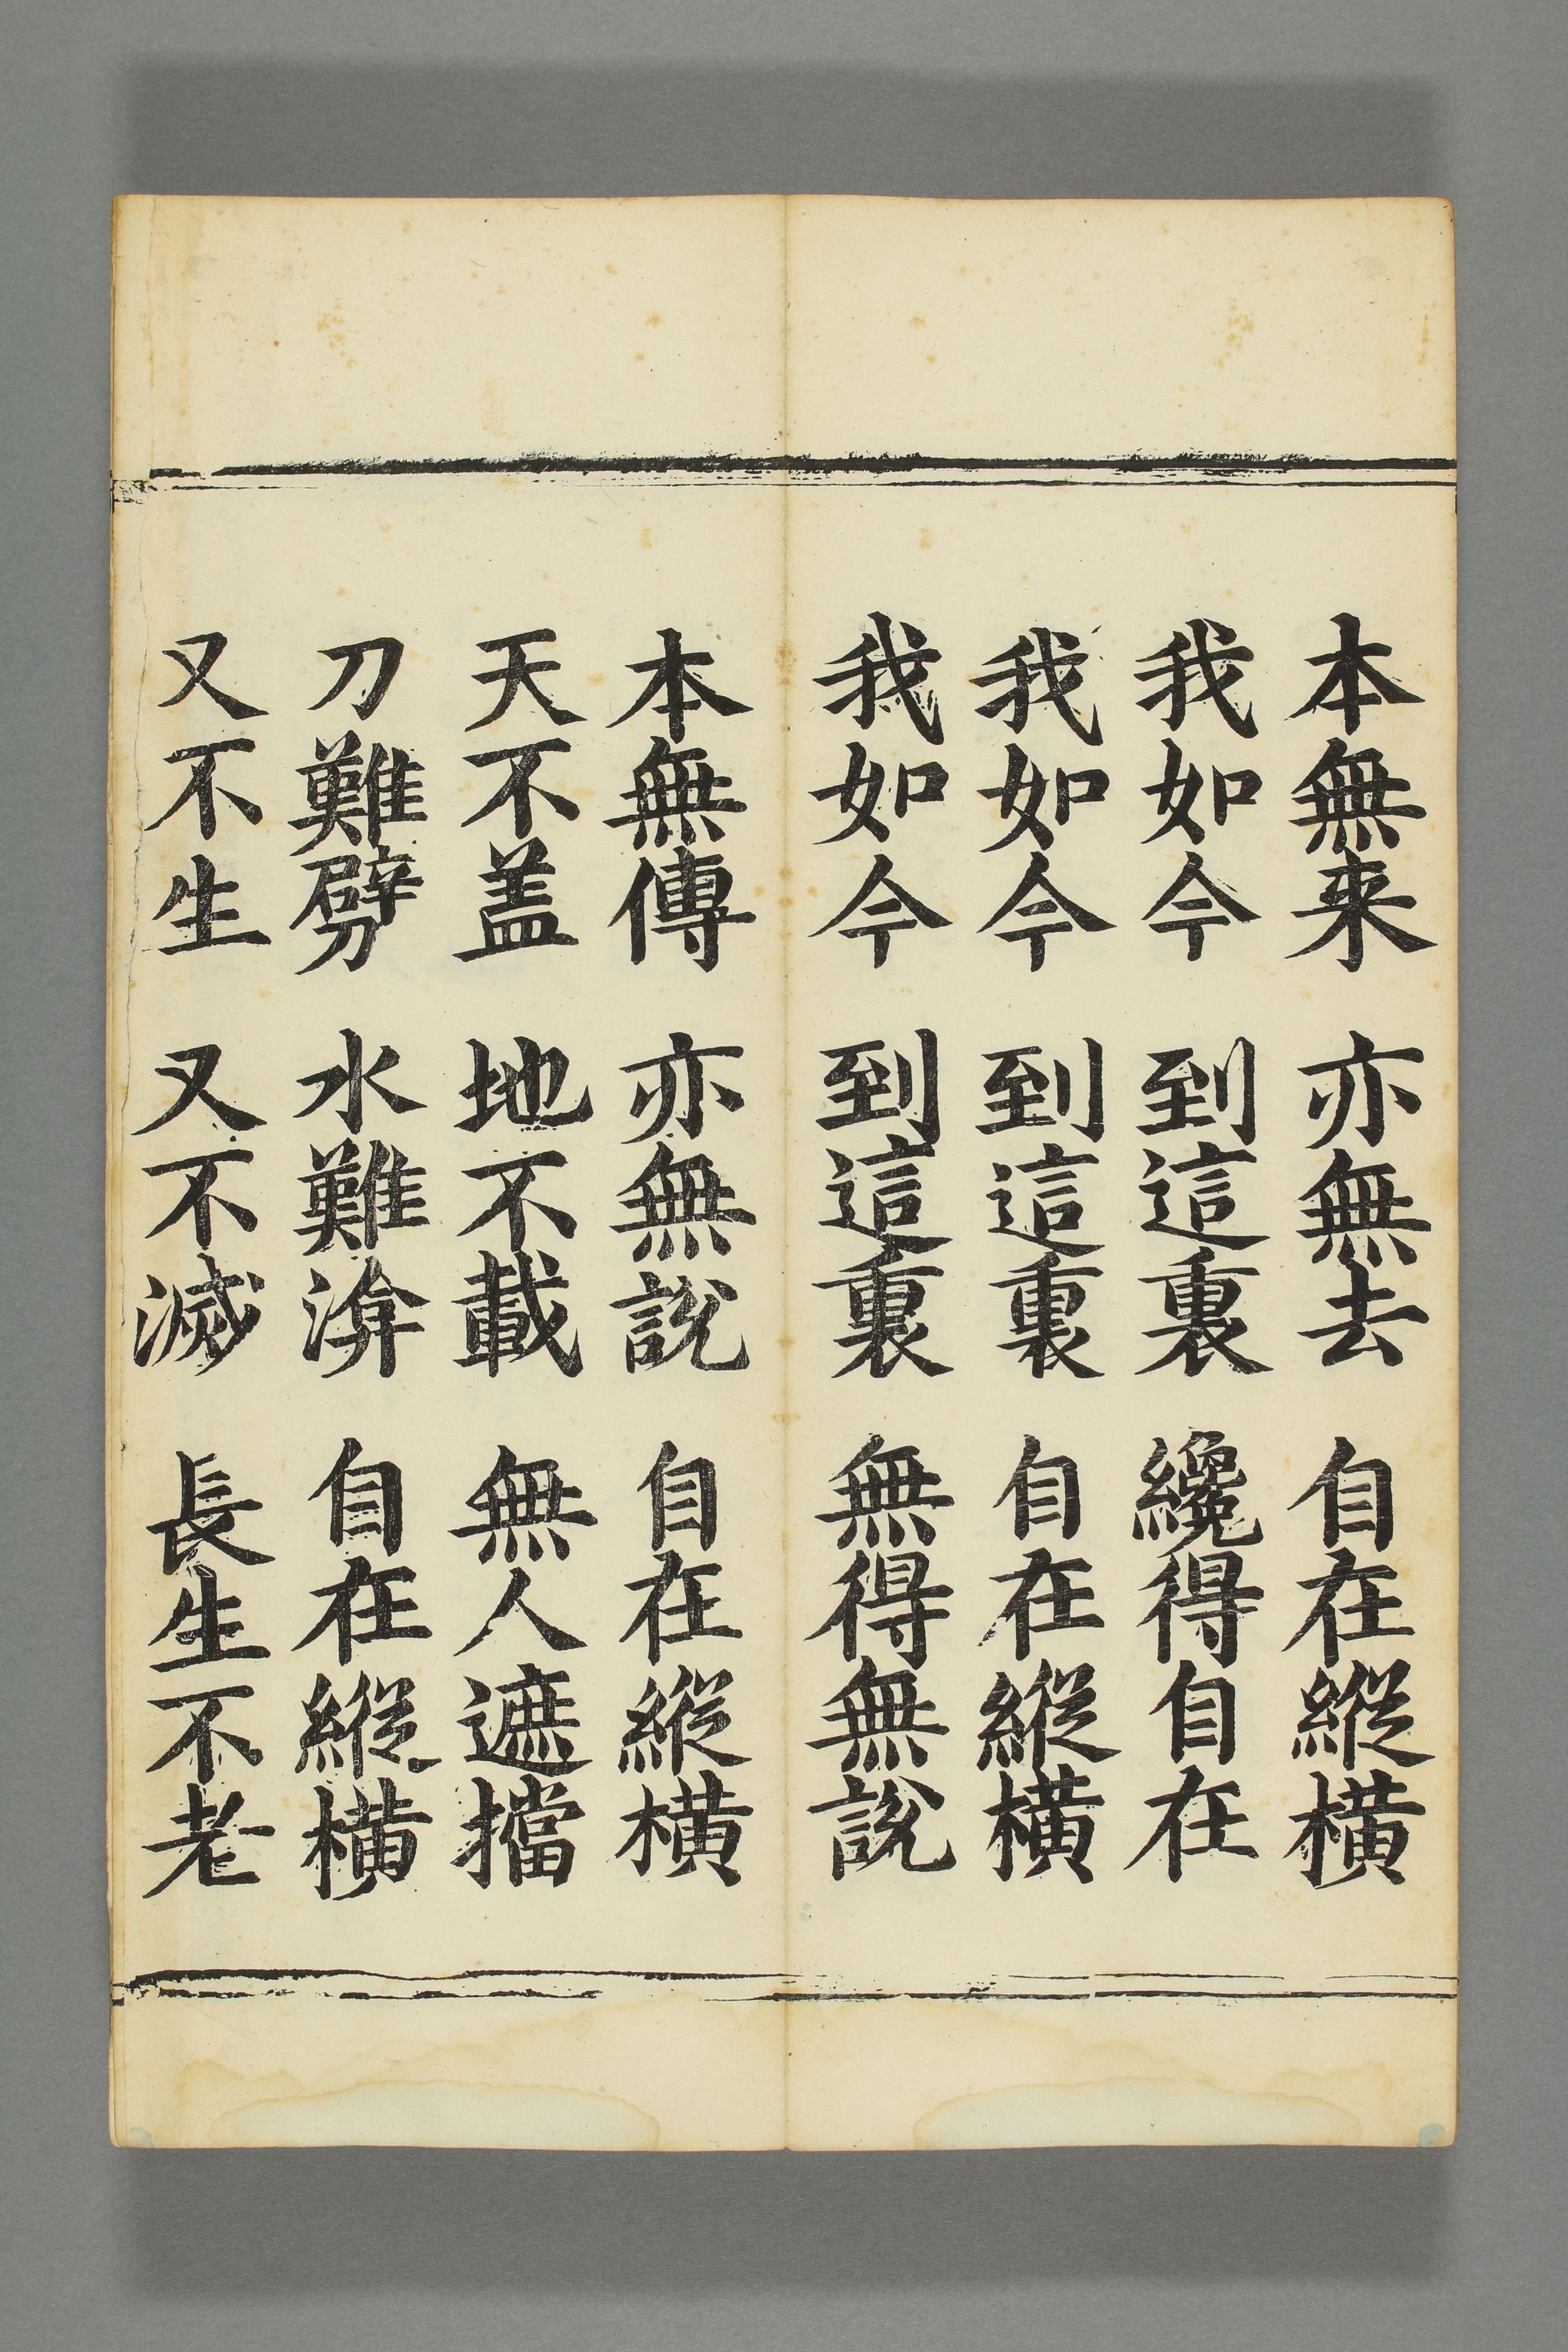 本無来　亦無去　自在縱橫
我如今　到這裏　纔得自在
我如今　到這裏　自在縱橫
我如今　到這裏　無得無說
本無傳　亦無說　自在縱橫
天不盖　地不載　無人遮擋
刀難劈　水難渰　自在縱橫
又不生　又不滅　長生不老